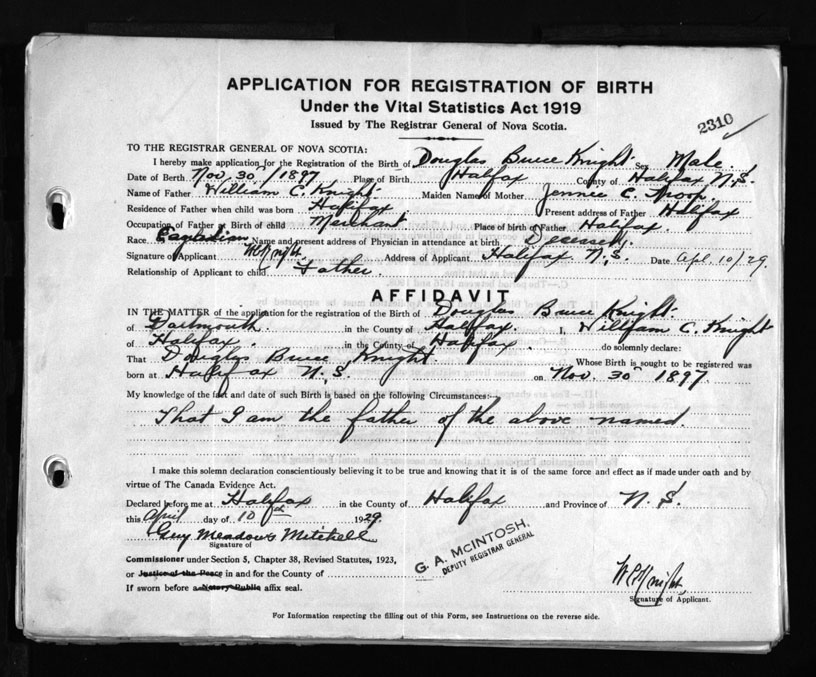 APPLICATION FOR REGISTRATION OF BIRTH
Under the Vital Statistics Act 1919
Issued by The Registrar General of Nova Scotia.
2310
TO THE REGISTRAR GENERAL OF NOVA SCOTIA:
I hereby make application for the Registration of the Birth of Douglas Bruce Knight Sex Male.
Date of Birth Nov. 30th/1897 Place of Birth Halifax County of Halifax N.S.
Name of Father William C. Knight Maiden Name of Mother Jennie C.
Residence of Father when child was born Halifax Present address of Father Halifax
Occupation of Father at Birth of child Merchant Place of birth of Father Halifax.
Race Canadian Name and present address of Physician in attendance at birth
Signature of Applicant WCKnight. Address of Applicant Halifax N.S. Date Apl. 10/29.
Relationship of Applicant to child Father.
AFFIDAVIT
IN THE MATTER of the application for the registration of the Birth of Douglas Bruce Knight
of Dartmouth in the County of Halifax. I, William C. Knight
of Halifax. in the County of Halifax. do solemnly declare:
That Douglas Bruce Knight. Whose Birth is sought to be registered was
born at Halifax N.S. on Nov. 30th 1897.
My knowledge of the fact and date of such Birth is based on the following Circumstances:
That I am the father of the above named.
I make this solemn declaration conscientiously believing it to be true and knowing that it is of the same force and effect as if made under oath and by
virtue of The Canada Evidence Act.
Declared before me at Halifax in the County of Halifax and Province of N.S.
this April day of 10th 1929.
Guy Meadows Mitchell
Signature of
Commissioner under Section 5, Chapter 38, Revised Statutes, 1923,
or Justice of the Peace in and for the County of
If sworn before a Notary Public affix seal.
G. A. McINTOSH,
DEPUTY REGISTRAR GENERAL
WCKnight.
Signature of Applicant.
For Information respecting the filling out of this Form, see Instructions on the reverse side.